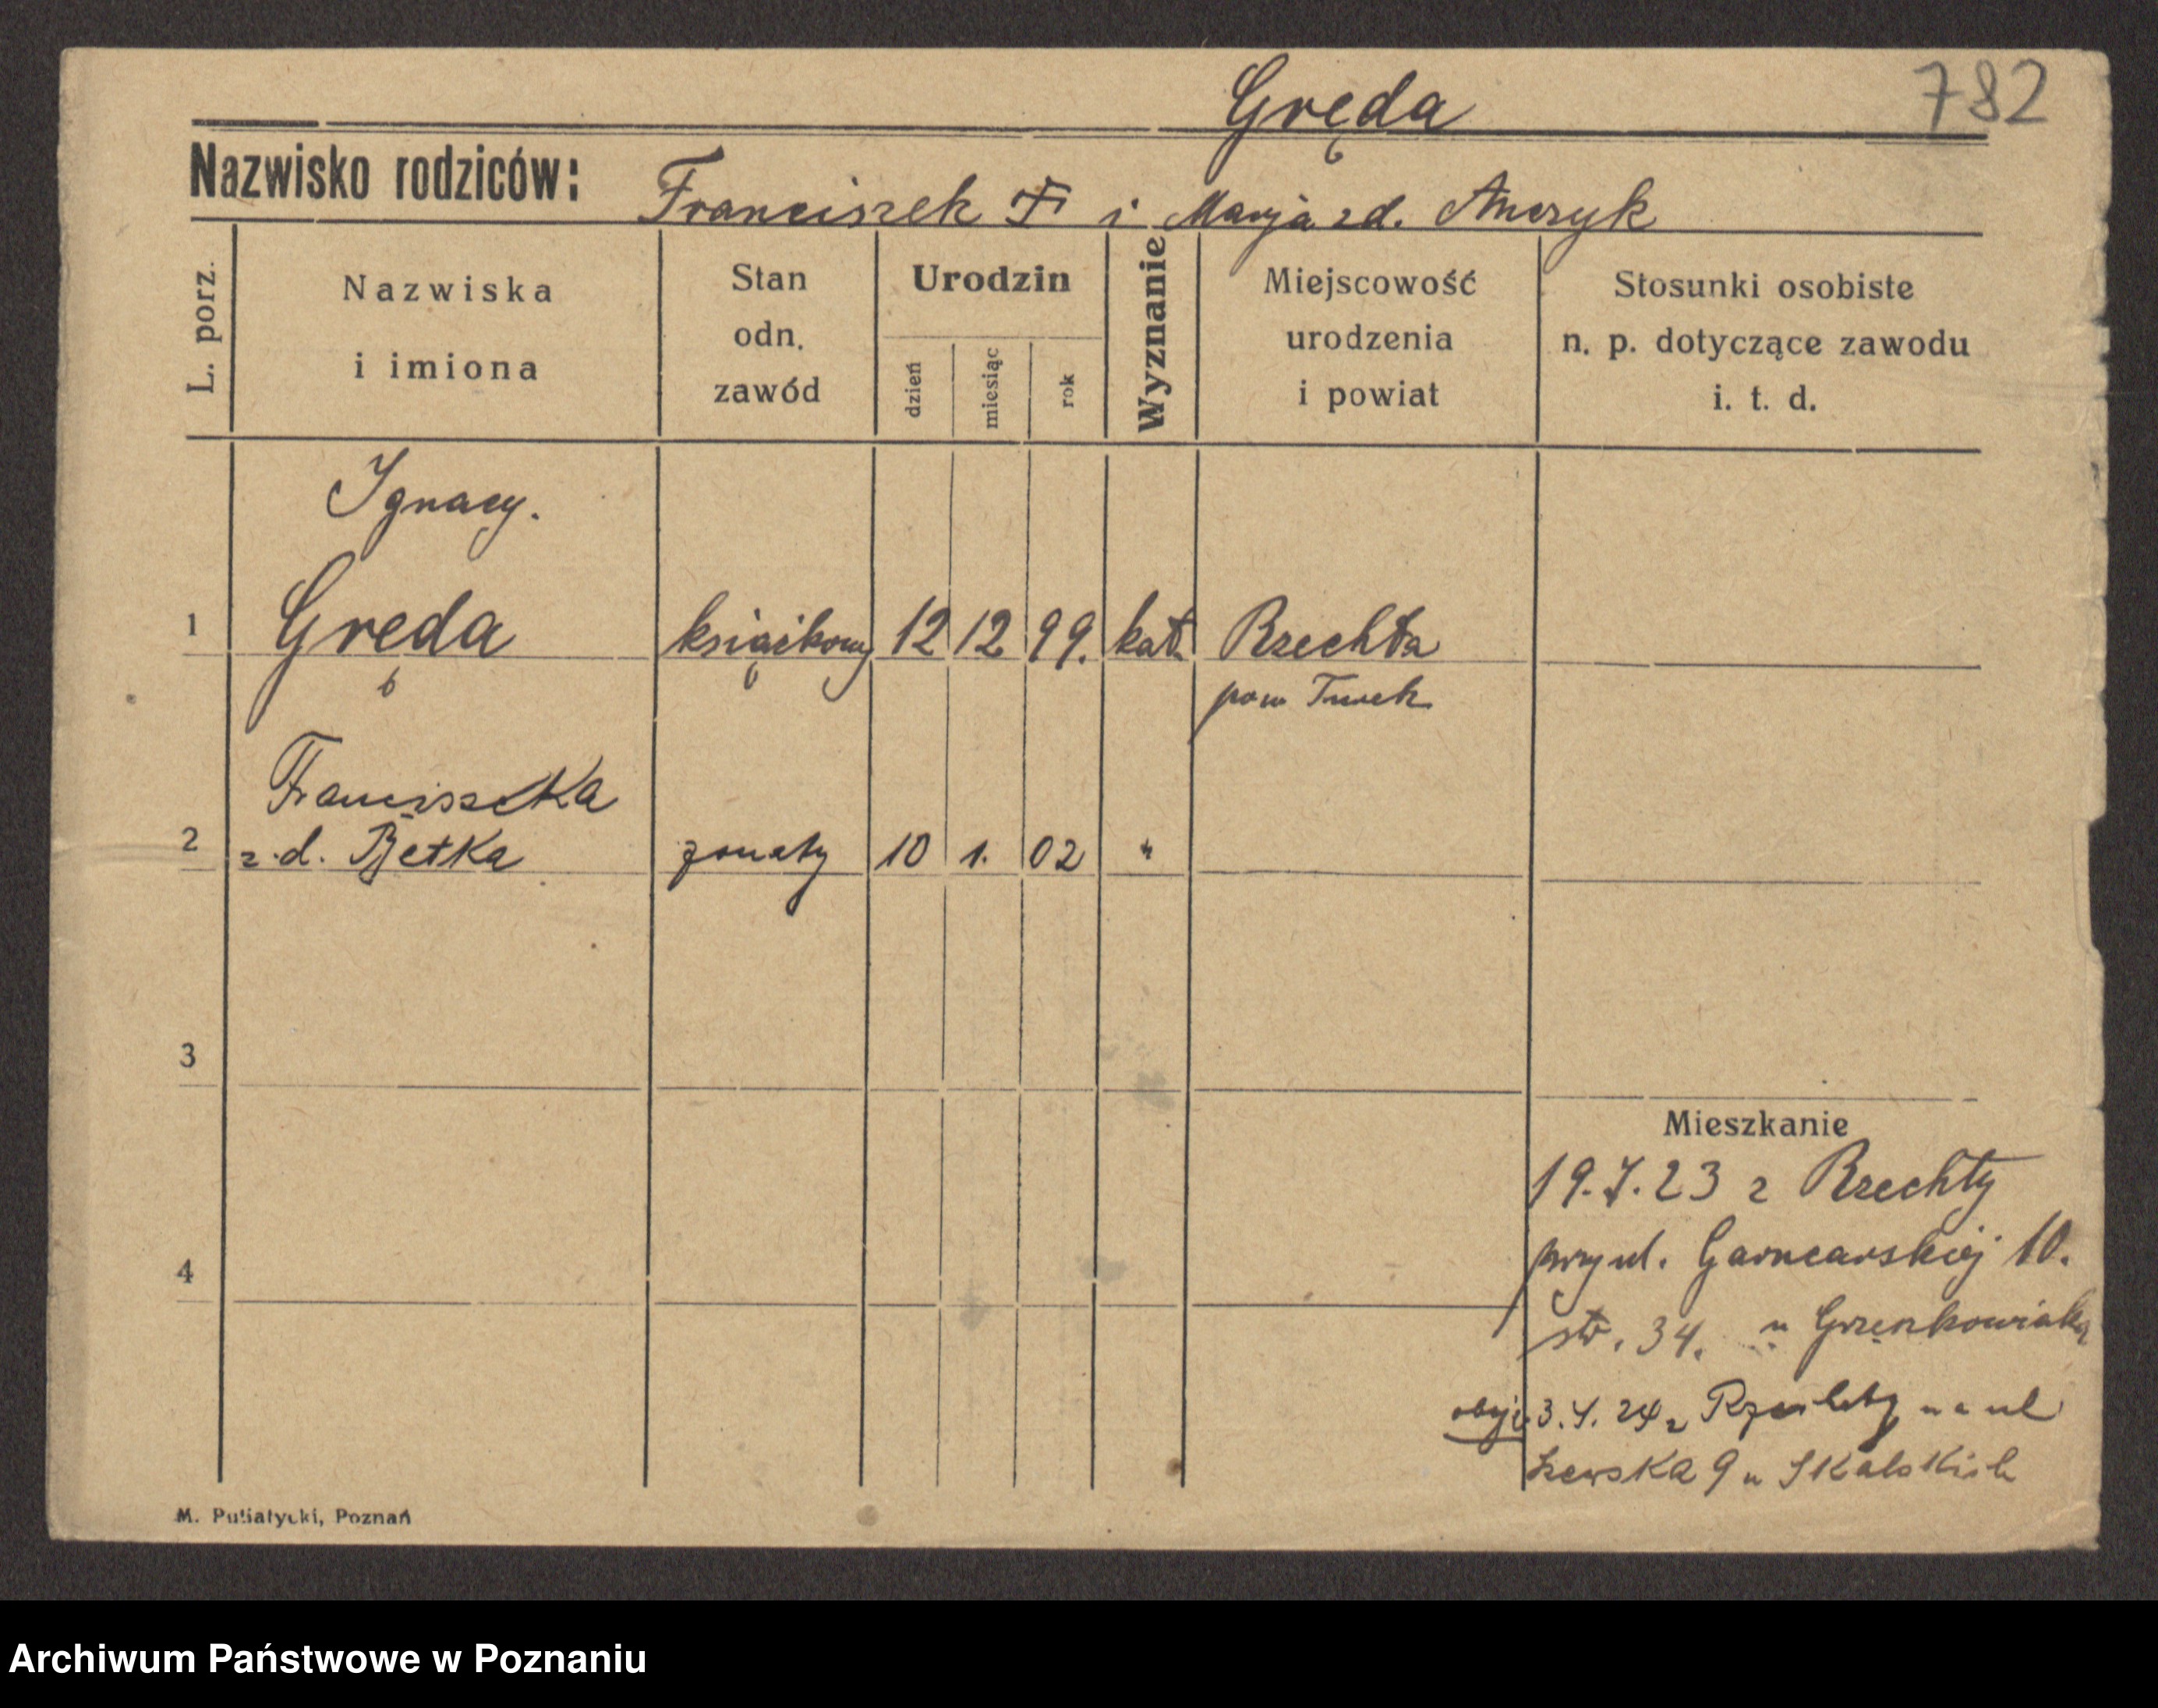 Gręda
782
Nazwisko rodziców:
Franciszek i Marja zd. Anczyk
L. porz.
Nazwiska
i imiona
Stan
odn.
zawód
Urodzin
dzień
miesiąc
rok
Wyznanie
Miejscowość
urodzenia
i powiat
Stosunki osobiste
n. p. dotyczące zawodu
i. t. d.
Ignacy.
1 Gręda książkowy 12 12 99. kat. Rzechta
pow Turek
Franciszka
2 z.d. Bętka żonaty 10 1. 02 "
3
Mieszkanie
19.7.23 z Rzechty
przy ul. Garncarskiej 10.
4
str. 34. u
3.4.24 z na ul
Szewska 9 u Skalskich
M. Putiatycki, Poznań
Archiwum Państwowe w Poznaniu